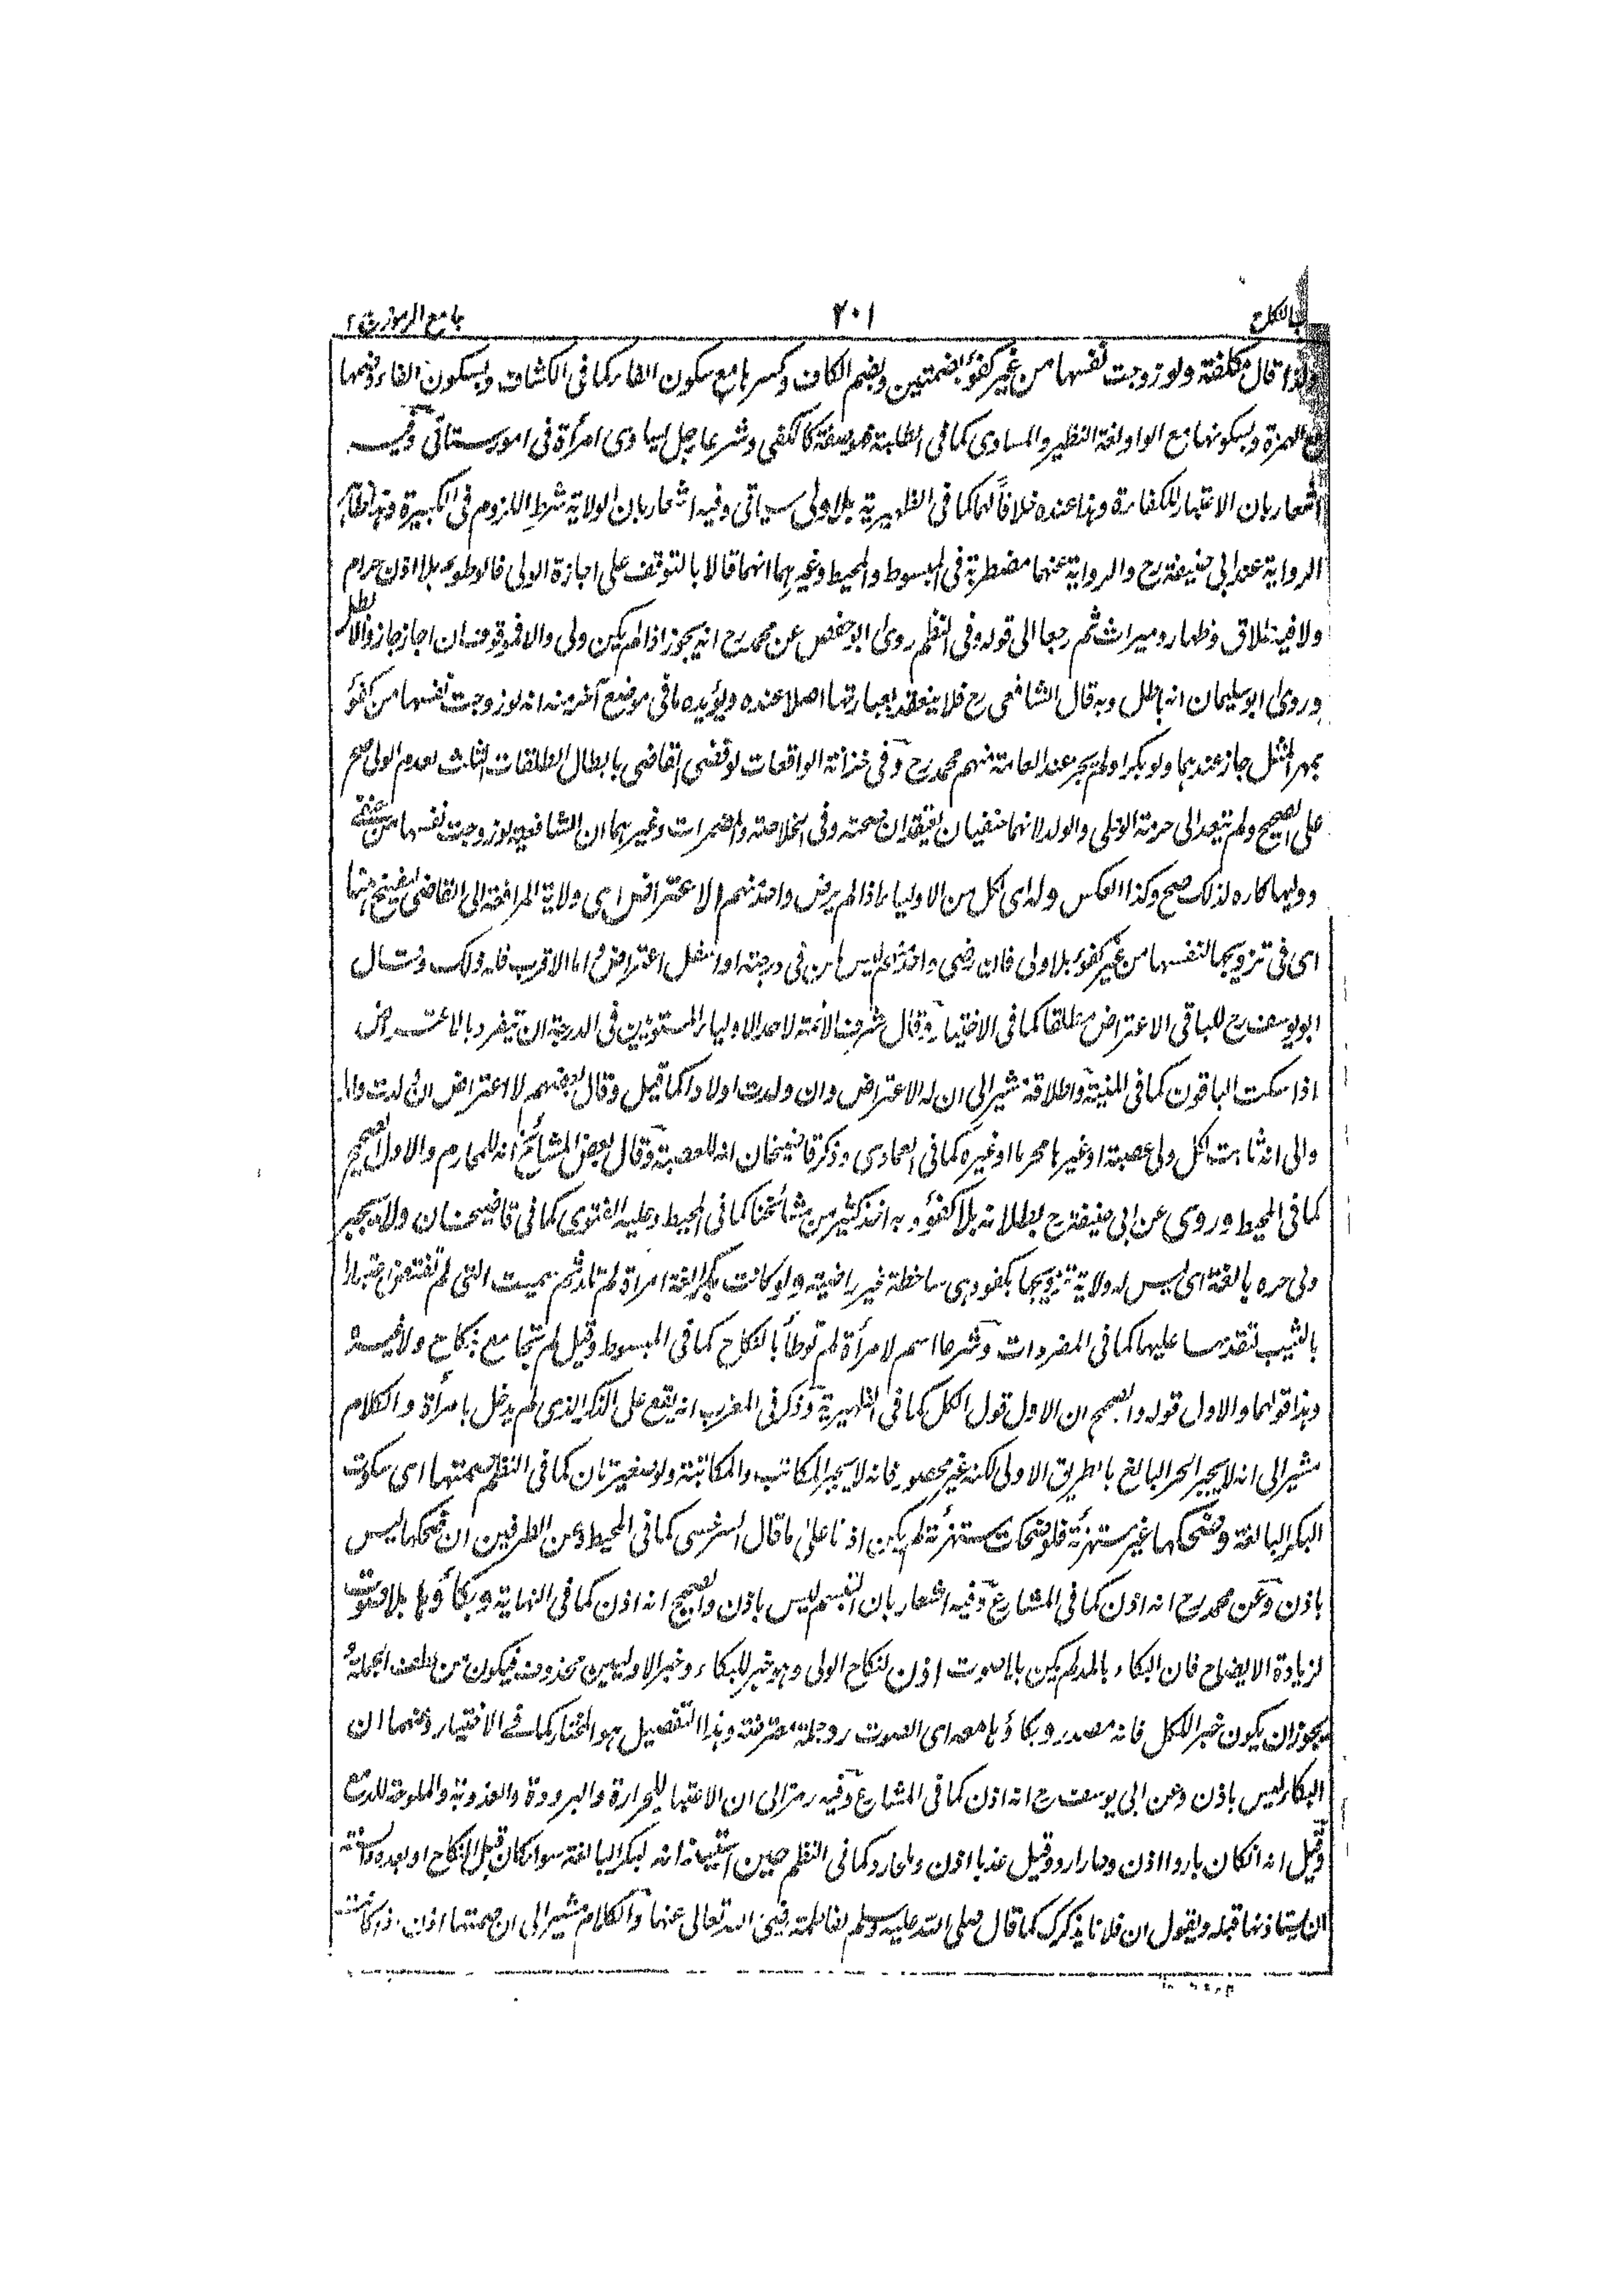 جامع الرموز ج ٢ ٢٠١ النكاح
ولذا قال مكلفة ولو زوجت نفسها من غير كفؤ بضمتين وبضم الكاف وكسرها مع سكون الفاء كما في الكشاف وبسكون الفاء وضمها
مع الهمزة وبسكونها مع الواو لغة النظير والمساوي كما في الطلبة فهو صفة كالكفي وشرعا رجل يساوي امرأة في امور ستاتي وفيه
اشعار بان الاعتبار للكفاءة وهذا عنده خلافا لهما كما في الظهيرية بلا ولي سياتي وفيه اشعار بان الولاية شرط اللزوم في الكبيرة وهذا ظاهر
الرواية عند ابي حنيفة رح والرواية عنهما مضطربة في المبسوط والمحيط وغيرهما انهما قالا بالتوقف على اجازة الولي فالوطؤ بلا اذن حرام
ولا فيه طلاق وظهار وميراث ثم رجعا الى قوله وفي النظم روى ابو حفص عن محمد رح انه يجوز اذا لم يكن ولي والا فموقوف ان اجاز جاز والا بطل
وروى ابو سليمان انه باطل وبه قال الشافعي رح فلا ينعقد بعبارتها اصلا عنده ويؤيده ما في موضع آخر منه انه لو زوجت نفسها من كفؤ
بمهر المثل جاز عندهما ولو بكرا ولم يجز عند العامة منهم محمد رح وفي خزانة الواقعات لو قضى القاضي بابطال الطلقات الثلث لعدم الولي صح
على الصحيح ولم يتعد الى حرمة الوطي والولد لانهما حنفيان يعتقدان صحته وفي الخلاصة والمضمرات وغيرهما ان الشافعية لو زوجت نفسها من حنفي
ووليها كاره لذلك صح وكذا العكس وله اي لكل من الاولياء اذا لم يرض واحد منهم الاعتراض اي ولاية المرافعة الى القاضي ليفسخ فيها
اي في تزويجها لنفسها من غير كفؤ بلا ولي فان رضي واحد منهم ليس لمن في درجته او اسفل اعتراض اما الاقرب فله ذلك وقال
ابو يوسف رح للباقي الاعتراض مطلقا كما في الاختيار وقال شرف الائمة لاحد الاولياء المستوين في الدرجة ان يتفرد بالاعتراض
اذا سكت الباقون كما في المنية واطلاقه مشير الى ان له الاعتراض وان ولدت اولادا كما قيل وقال بعضهم لا اعتراض ان ولدت ولدا
والى انه ثابت لكل ولي عصبة او غيرها محرما او غيره كما في العمادي وذكر قاضيخان انه للعصبة وقال بعض المشائخ انه للمحارم والاول الصحيح
كما في المحيط وروى عن ابي حنيفة رح بطلانه بلا كفؤ وبه اخذ كثير من مشائخنا كما في المحيط وعليه الفتوى كما في قاضيخان ولا يجبر
ولي حره بالغة اي ليس له ولاية تزويجها بكفو وهي ساخطة غير راضية ولو كانت بكرا لغة امرأة لم تلد ثم سميت التي لم تفتض اعتبارا
بالثيب لتقدمها عليها كما في المفردات وشرعا اسم لامرأة لم توطأ بالنكاح كما في المبسوط وقيل لم تجامع بنكاح ولا غيره
وهذا قولهما والاول قوله والصحيح ان الاول قول الكل كما في الظهيرية وذكر في المغرب انه يقع على الذكر الذي لم يدخل بامرأة والكلام
مشير الى انه لا يجبر الحر البالغ بالطريق الاولى لكنه غير محصور فانه لا يجبر المكاتب والمكاتبة ولو صغيرتان كما في النظم وصمتها اي سكوت
البكر البالغة وضحكها غير مستهزئة فلو ضحكت مستهزئة لم يكن اذنا على ما قال السرخسي كما في المحيط وعن الطرفين ان ضحكها ليس
باذن وعن محمد رح انه اذن كما في المشارع وفيه اشعار بان التبسم ليس باذن والصحيح انه اذن كما في النهاية وبكاؤها بلا صوت
لزيادة الايضاح فان البكاء بالمد لم يكن بلا صوت اذن لنكاح الولي وهو خبر للبكاء وخبر الاوليين محذوف فيكون من عطف الجملة
يجوز ان يكون خبر الكل فانه مصدر وبكاؤها معه اي الصوت رد جملة معترضة وهذا التفصيل هو المختار كما في الاختيار وعنهما ان
البكاء ليس باذن وعن ابي يوسف رح انه اذن كما في المشارع وفيه رمز الى ان الاعتبار للحرارة والبرودة والعذوبة والملوحة للدمع
وقيل انه ان كان باردا اذن وحارا رد وقيل عذبا اذن وملحا رد كما في النظم حين استيذانه لبكر البالغة سواء كان قبل النكاح او بعده والسنة
ان يستاذنها قبله ويقول ان فلانا يذكرك كما قال صلى الله عليه وسلم لفاطمة رضي الله تعالى عنها والكلام مشير الى ان صمتها اذن